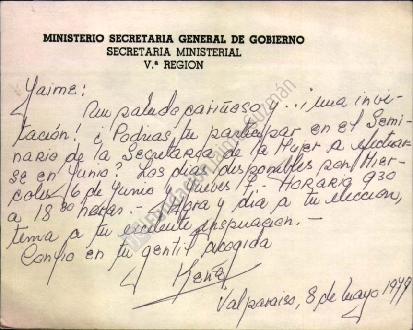 MINISTERIO SECRETARIA GENERAL DE GOBIERNO
SECRETARIA MINISTERIAL
V.ª REGION
Jaime:
Un saludo cariñoso y ...¡ una invi-
tación! ¿ Podrías tu participar en el Semi-
nario de la Secretaría de la Mujer a efectuar-
se en Junio? Los días disponibles son Mier-
coles 6 de Junio y Jueves 7. Horario 9 30
a 18 30 horas.- Hora y día a tu elección,
tema a tu excelente inspiración.-
Confío en tu gentil acogida
Valparaíso, 8 de mayo 1979